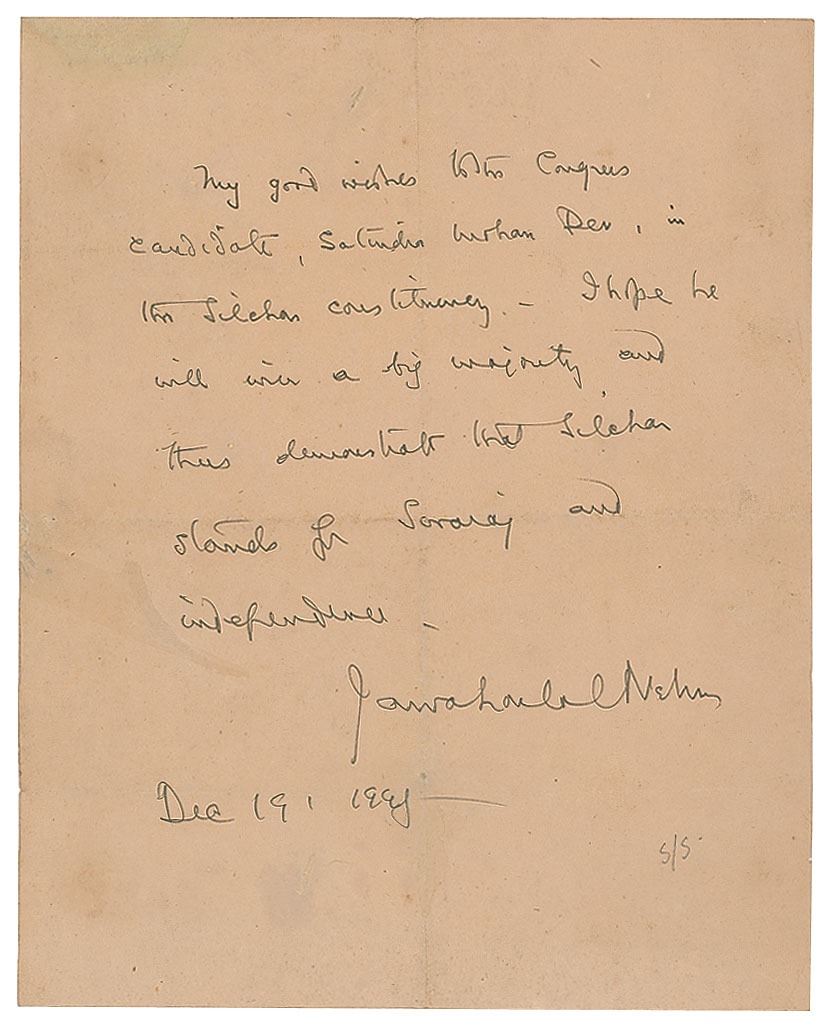 My good wishes to the Congress
candidate, Satindra Mohan Dev, in
the Silchar constituency. - I hope he
will win a big majority and
thus demonstrate that Silchar
stands for Swaraj and
independence -
Jawaharlal Nehru
Dec 19, 1945
5/5